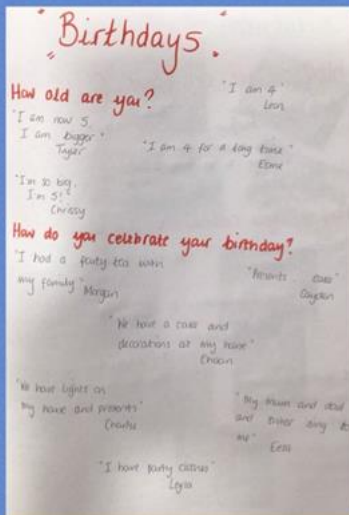 "Birthdays."
How old are you?
"I am 4"
Leon
"I am now 5.
I am bigger"
Tyler
"I am 4 for a long time"
Esme
"I'm so big.
I'm 5!"
Chrissy
How do you celebrate your birthday?
"I had a party tea with
my family" Morgan
"Presents"
Cayden
"We have a cake and
decorations at my house"
"We have lights on
my house and presents"
Charlie
"My mum and dad
and sister sing to
me"
"I have party"
Layla